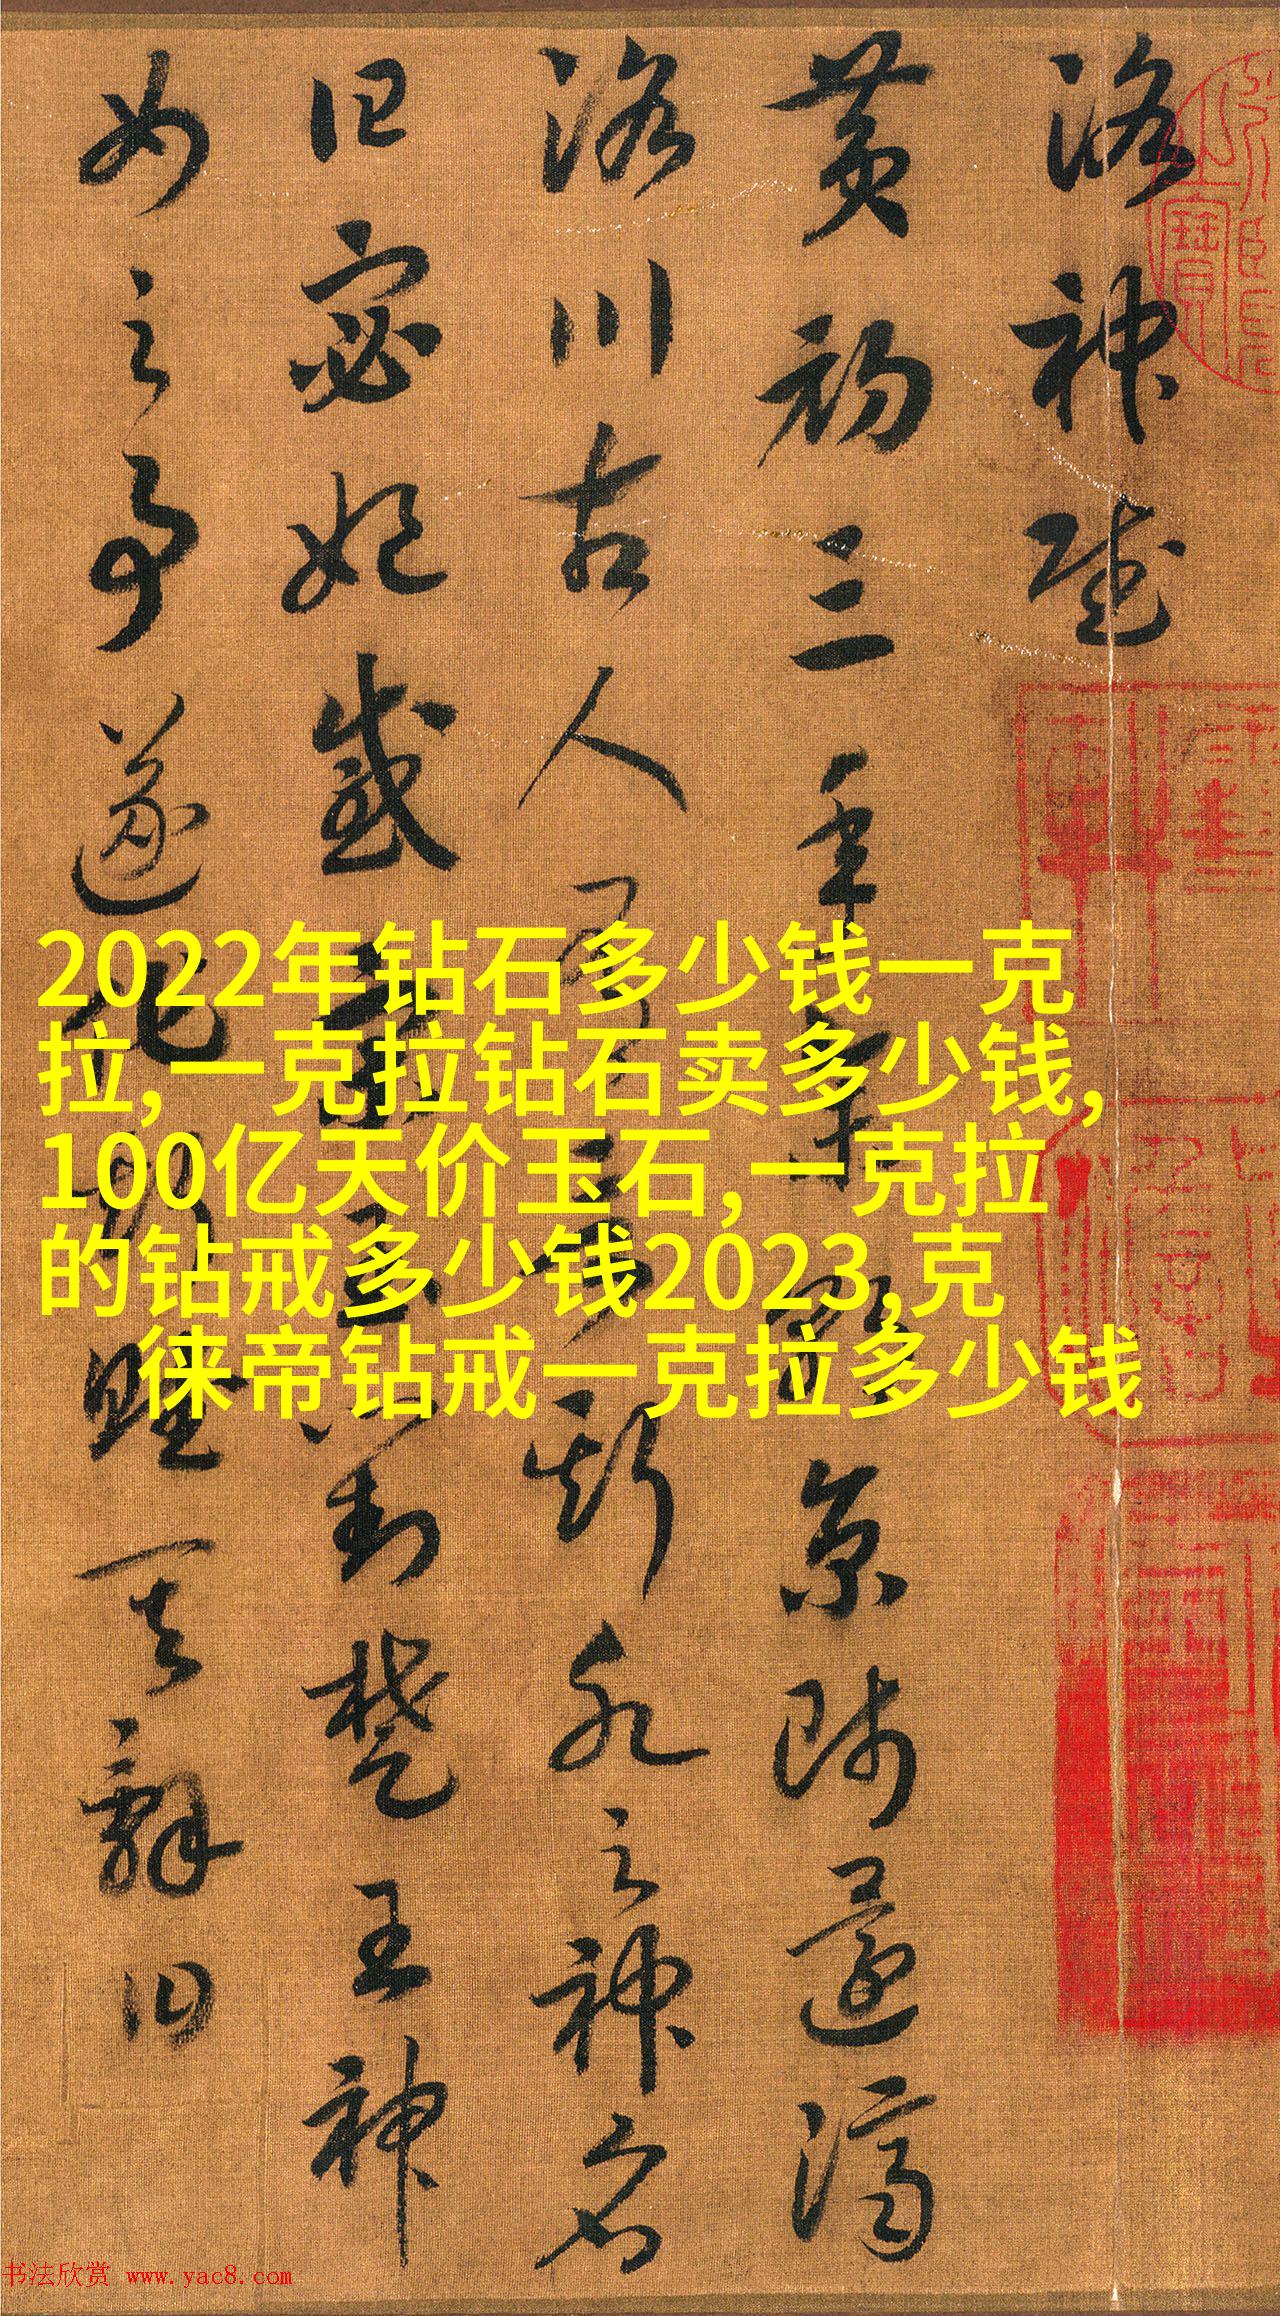 洛神赋
黄初三年
京师还济
洛川古人
斯水之神名
曰宓妃感
对楚王神
女之事遂作
其辞曰
2022年钻石多少钱一克
拉,一克拉钻石卖多少钱,
100亿天价玉石,一克拉
的钻戒多少钱2023,克
徕帝钻戒一克拉多少钱
书法欣赏 www.yac8.com